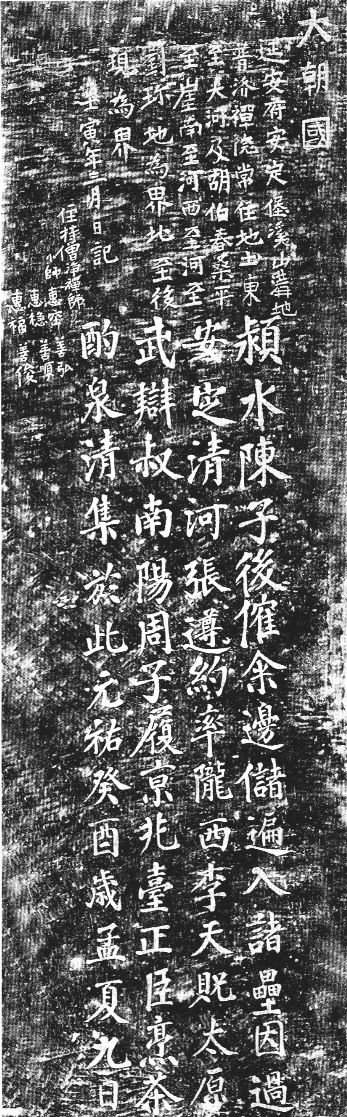 大朝國
延安府安定堡溪山䨇地
普济禪院常住地土東
至大河及胡伯春桑平
至崖南至河西至河至
劉琮地為界北至後
硯為界
壬寅年二月日記
住持僧淨禪師
小師惠宰 善弘
惠稳 善順
惠福 善俊
潁水陳子後催余邊儲遍入諸壘因過
安定清河張遵約率隴西李天貺太原
武辯叔南陽周子履京兆臺正臣烹茶
酌泉清集於此元祐癸酉歲孟夏九日